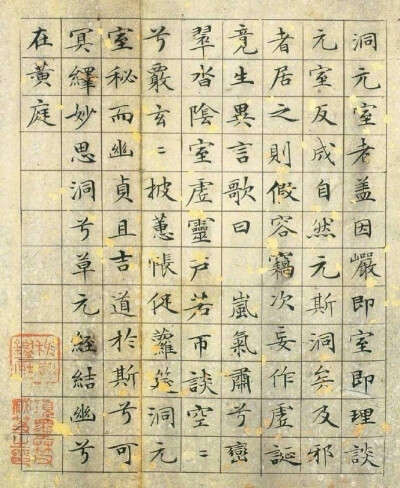 洞元室者蓋因巖即室即理談
元室反成自然元斯洞矣及邪
者居之則假容竊次妄作虛誕
竟生異言歌曰 嵐氣肅兮巒
翠沓陰室虛靈戶若帀談空〻
兮覈玄〻披蕙帳促蘿筵洞元
室秘而幽貞且吉道於斯兮可
冥繹妙思洞兮草元經結幽兮
在黃庭